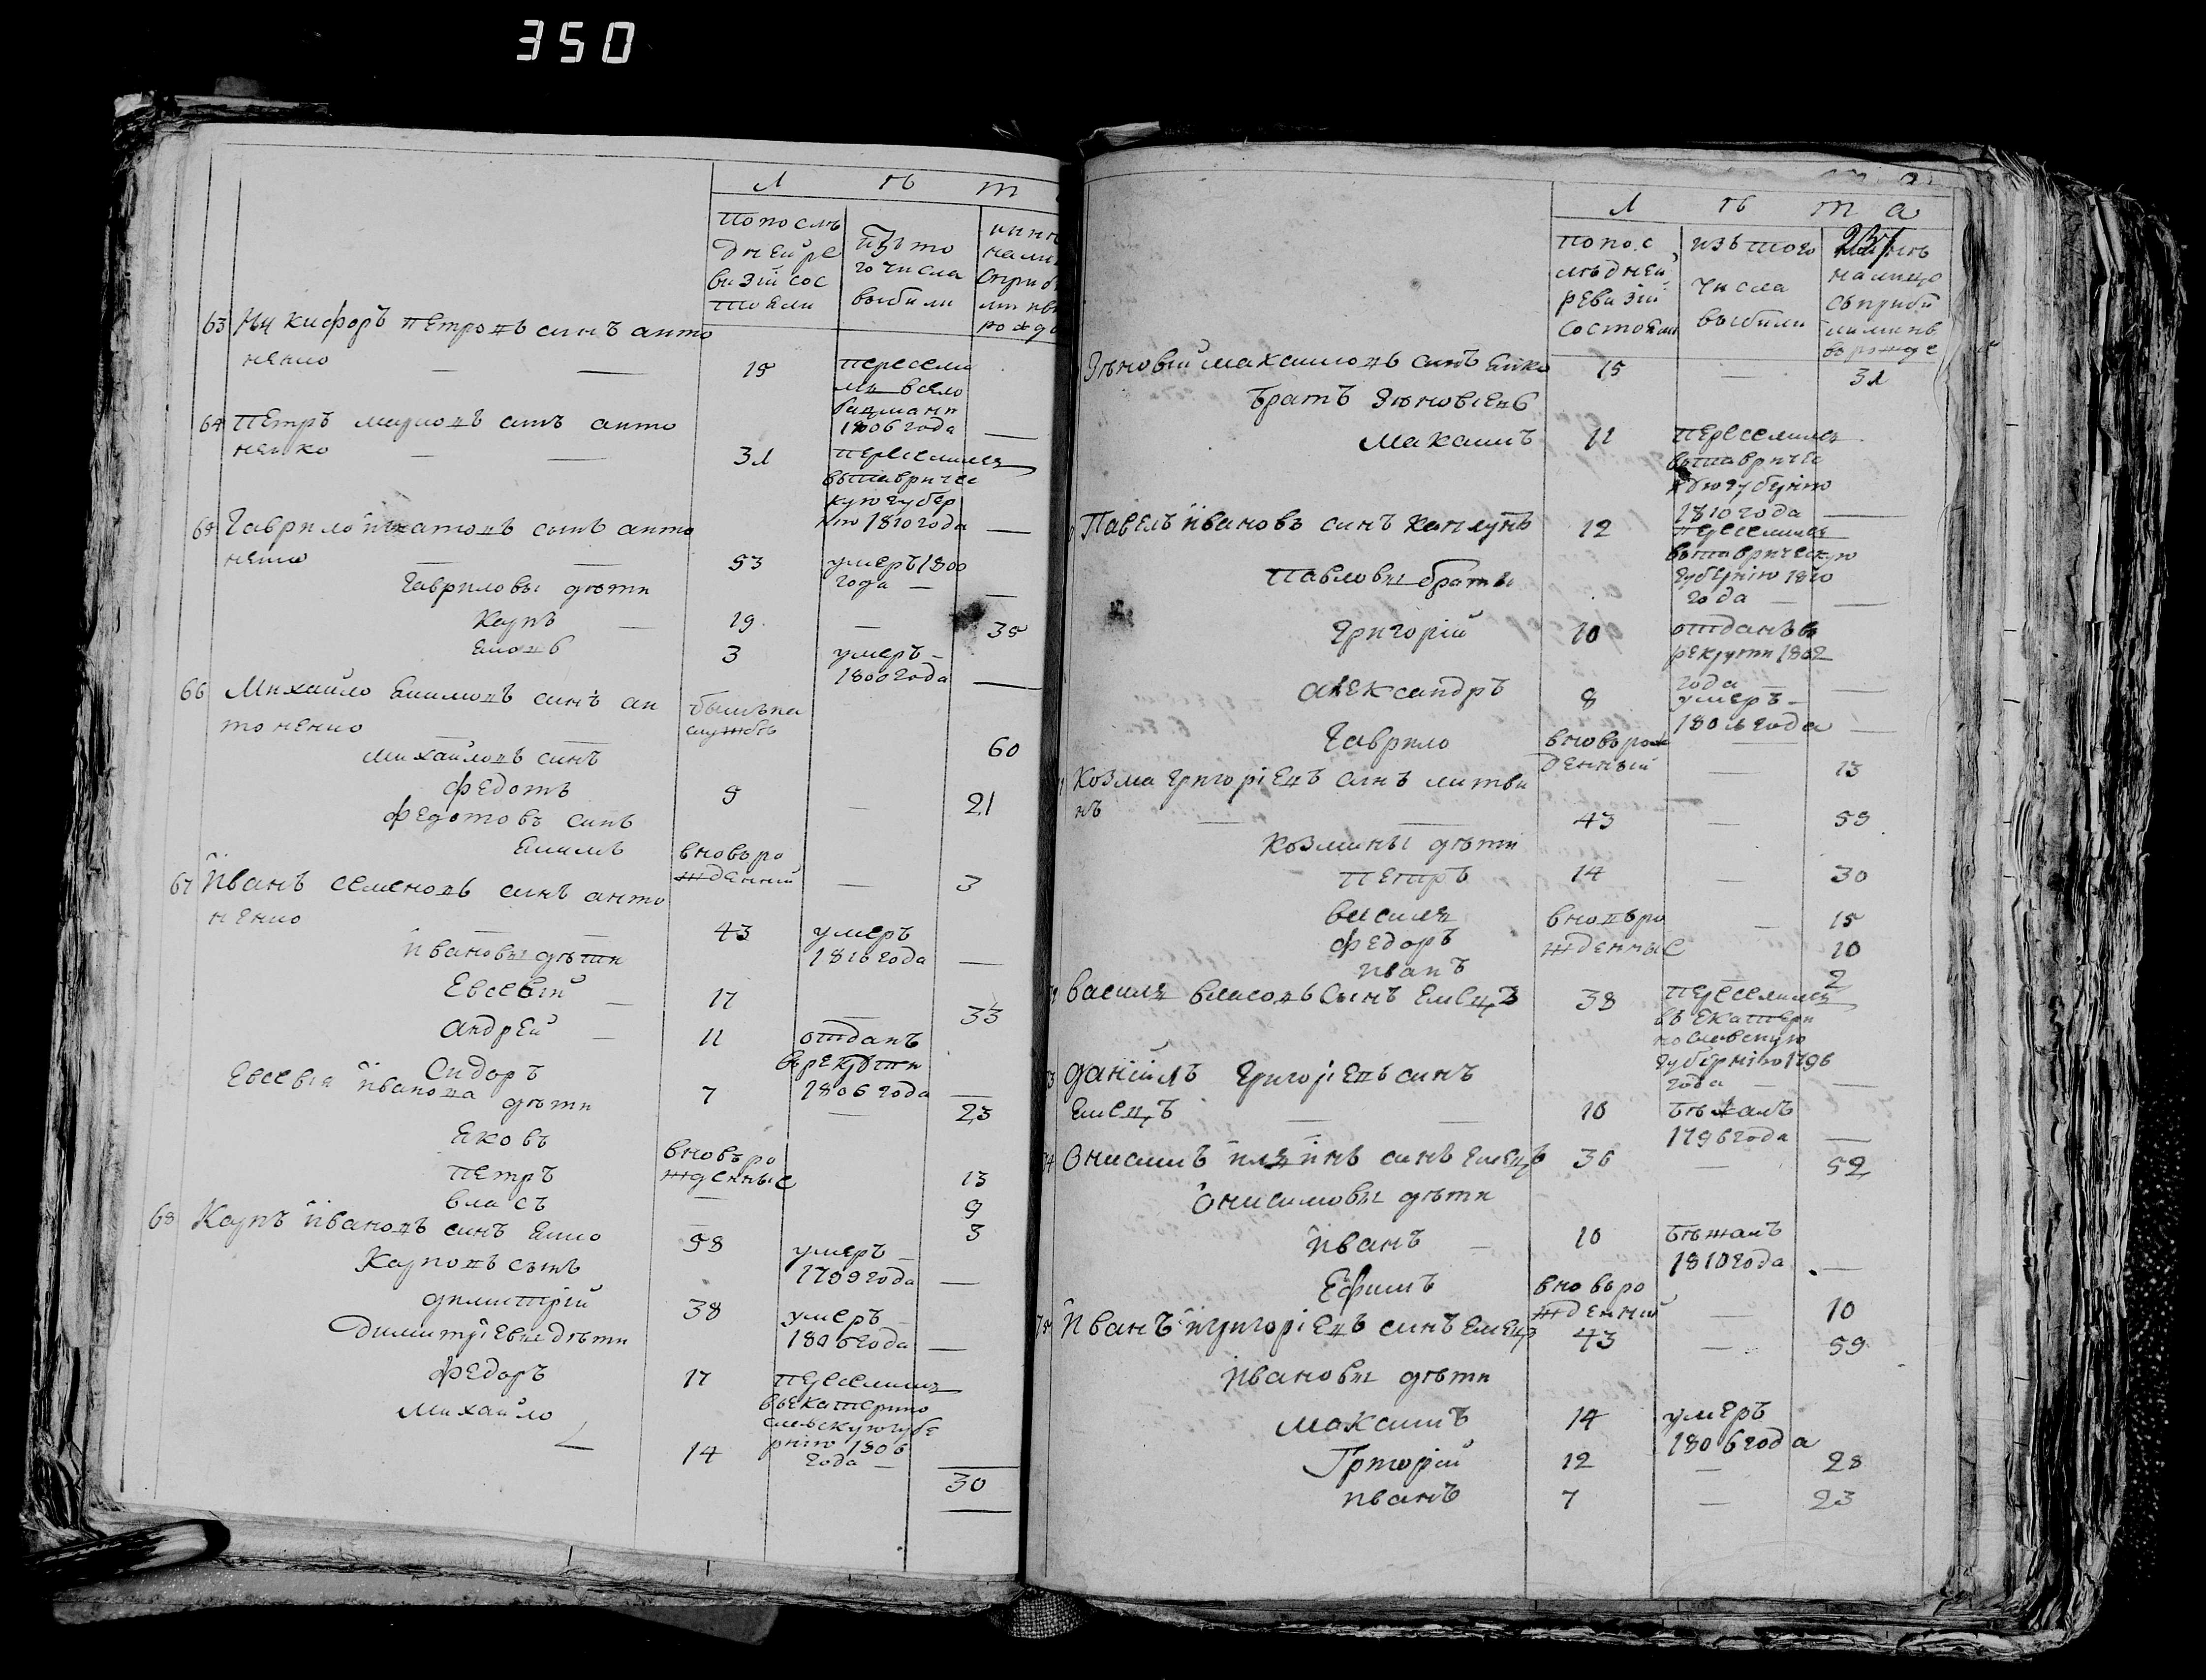 350
Л ѣ т
По послѣ
дней ре
визіи сос
тояли
Изъ то
го числа
выбыли
63 Никифоръ Петровъ синъ анто
ненко — — 15
пересели
въ село
1806 года —
64 Петръ синъ анто
ненко — — 31
переселился
въ тавричес
кую губер
нію 1810 года —
65 Гаврило синъ анто
ненко — — 53
умеръ 1800
года — —
Гавриловы дѣти
Карпъ — 19 — 35
3 умеръ —
1800 года —
66 Михайло синъ ан
тоненко —
былъ на
службѣ
60
Михайловъ синъ
Федотъ 5 — 21
Федотовъ синъ
вновь ро
жденний — 3
67 Иванъ Семеновъ синъ анто
ненко — — 43 умеръ
1816 года —
Ивановы дѣти
Евсевій — 17 — 33
Андрей — 11 отданъ
въ рекруты
1806 года —
Сидоръ 7 — 23
Евсевія Иванова дѣти
Яковъ вновь ро
жденные 13
Петръ 9
Власъ — 3
68 Карпъ Ивановъ синъ 58 умеръ —
1799 года —
Карповъ сынъ
Димитрій 38 умеръ
1806 года —
Димитріевы дѣти
Федоръ 17
Михайло 14
переселились
въ екатерино
славскую губе
рнію 1806
года —
30
Л ѣ т а
237
По пос
лѣдней
ревизіи
состояли
изъ того
числа
выбыли
налицо
съ прибы
лими и нв
ворожде
Зѣновій Максимовъ синъ 15 — 31
Братъ Зѣновіевъ
Максимъ 11 переселился
въ тавричес
кую губернію
1810 года —
Павелъ Ивановъ синъ Каплунъ 12 переселился
въ таврическую
губернію 1810
года — —
Павловы братья
Григорій 10 отданъ въ
рекруты 1802
года — —
Александръ 8 умеръ —
года —
Гаврило вновь рож
денный — 13
Козма Григоріевъ синъ литви
нъ — — 43 — 59
Козмины дѣти
Петръ 14 — 30
Василя вновь ро
жденные — 15
Федоръ 10
Иванъ 2
Василя Власовъ Сынъ Емецъ 38 переселился
въ Екатери
нославскую
губернію 1796
года — —
Даніилъ Григоріевъ синъ
Емецъ — — 10 бѣжалъ
1796 года —
74 Онисимъ синъ Емецъ 36 — 52
Онисимовы дѣти
Иванъ — 10 бѣжалъ
1810 года —
Ефимъ вновь ро
жденный — 10
75 Иванъ Григоріевъ синъ Емецъ 43 — 59
Ивановы дѣти
Максимъ 14 умеръ
1806 года
Григорій 12 — 28
Иванъ 7 — 23